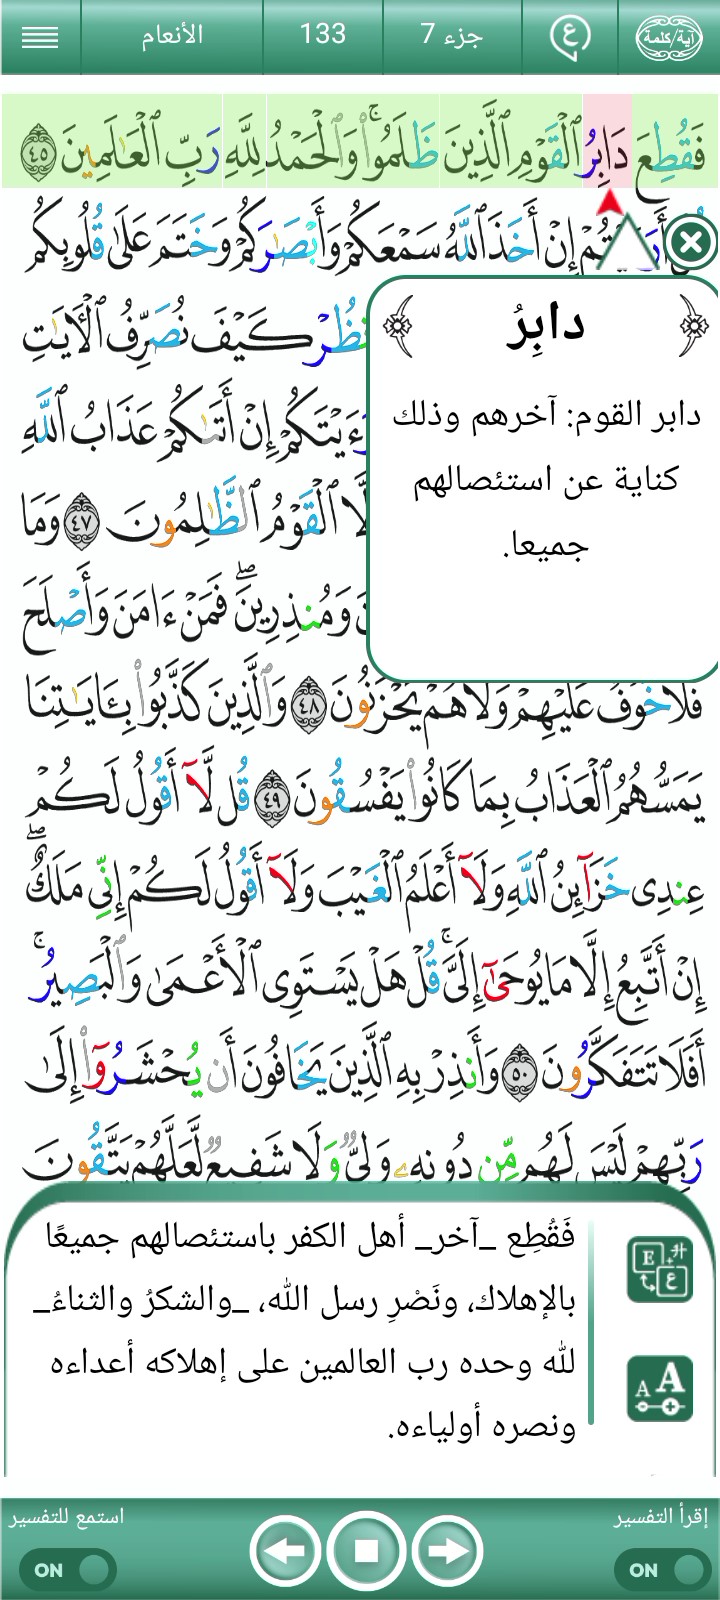 الأنعام
133
جزء 7
ع
آية/كلمة
فَقُطِعَ دَابِرُ ٱلْقَوْمِ ٱلَّذِينَ ظَلَمُوا۟ ۚ وَٱلْحَمْدُ لِلَّهِ رَبِّ ٱلْعَـٰلَمِينَ ٤٥
إِنْ أَخَذَ ٱللَّهُ سَمْعَكُمْ وَأَبْصَـٰرَكُمْ وَخَتَمَ عَلَىٰ قُلُوبِكُم
كَيْفَ نُصَرِّفُ ٱلْـَٔايَـٰتِ
إِنْ أَتَىٰكُمْ عَذَابُ ٱللَّهِ
ٱلْقَوْمُ ٱلظَّـٰلِمُونَ ٤٧ وَمَا
وَمُنذِرِينَ ۖ فَمَنْ ءَامَنَ وَأَصْلَحَ
فَلَا خَوْفٌ عَلَيْهِمْ وَلَا هُمْ يَحْزَنُونَ ٤٨ وَٱلَّذِينَ كَذَّبُوا۟ بِـَٔايَـٰتِنَا
يَمَسُّهُمُ ٱلْعَذَابُ بِمَا كَانُوا۟ يَفْسُقُونَ ٤٩ قُل لَّآ أَقُولُ لَكُمْ
عِندِى خَزَآئِنُ ٱللَّهِ وَلَآ أَعْلَمُ ٱلْغَيْبَ وَلَآ أَقُولُ لَكُمْ إِنِّى مَلَكٌ ۖ
إِنْ أَتَّبِعُ إِلَّا مَا يُوحَىٰٓ إِلَىَّ ۚ قُلْ هَلْ يَسْتَوِى ٱلْأَعْمَىٰ وَٱلْبَصِيرُ ۚ
أَفَلَا تَتَفَكَّرُونَ ٥٠ وَأَنذِرْ بِهِ ٱلَّذِينَ يَخَافُونَ أَن يُحْشَرُوٓا۟ إِلَىٰ
رَبِّهِمْ لَيْسَ لَهُم مِّن دُونِهِۦ وَلِىٌّ وَلَا شَفِيعٌ لَّعَلَّهُمْ يَتَّقُونَ
دابِرُ
دابر القوم: آخرهم وذلك
كناية عن استئصالهم
جميعا.
فَقُطِع _آخر_ أهل الكفر باستئصالهم جميعًا
بالإهلاك، ونَصْرِ رسل الله، _والشكرُ والثناءُ_
لله وحده رب العالمين على إهلاكه أعداءه
ونصره أولياءه.
استمع للتفسير
إقرأ التفسير
ON
ON